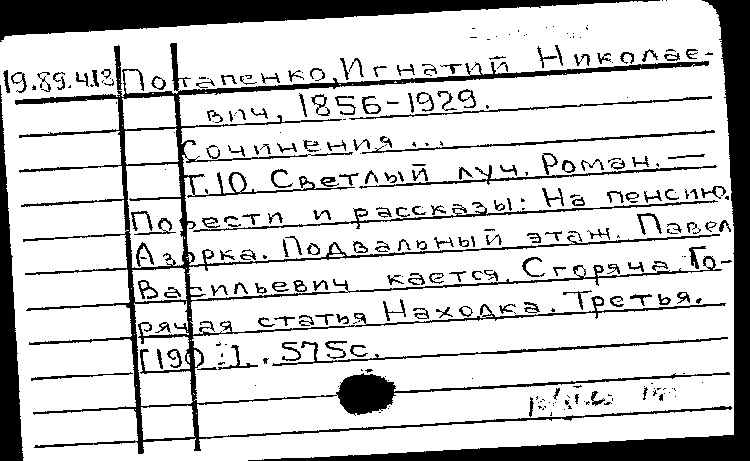 19.89.4.18 Потапенко, Игнатий Николае-
вич, 1856-1929.
Сочинения ...
Т.10. Светлый луч. Роман. —
Повести и рассказы: На пенсию.
Азорка. Подвальный этаж. Павел
Васильевич кается. Сгоряча. Го-
рячая статья Находка. Третья.
[190 ]. . 575с.